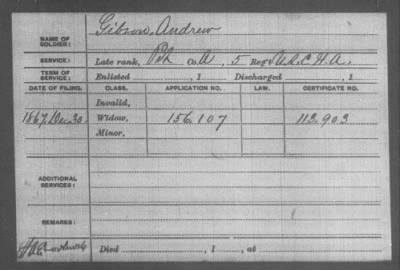 NAME OF SOLDIER: Gibson, Andrew
SERVICE: Late rank, Pvt Co. A, 5 Reg't U.S.C.H.A.
TERM OF SERVICE: Enlisted , 1 Discharged , 1
DATE OF FILING. CLASS. APPLICATION NO. LAW. CERTIFICATE NO.
Invalid,
1867, Dec. 30. Widow, 156.107 113.903
Minor,
ADDITIONAL SERVICES:
REMARKS:
Died , 1 , at